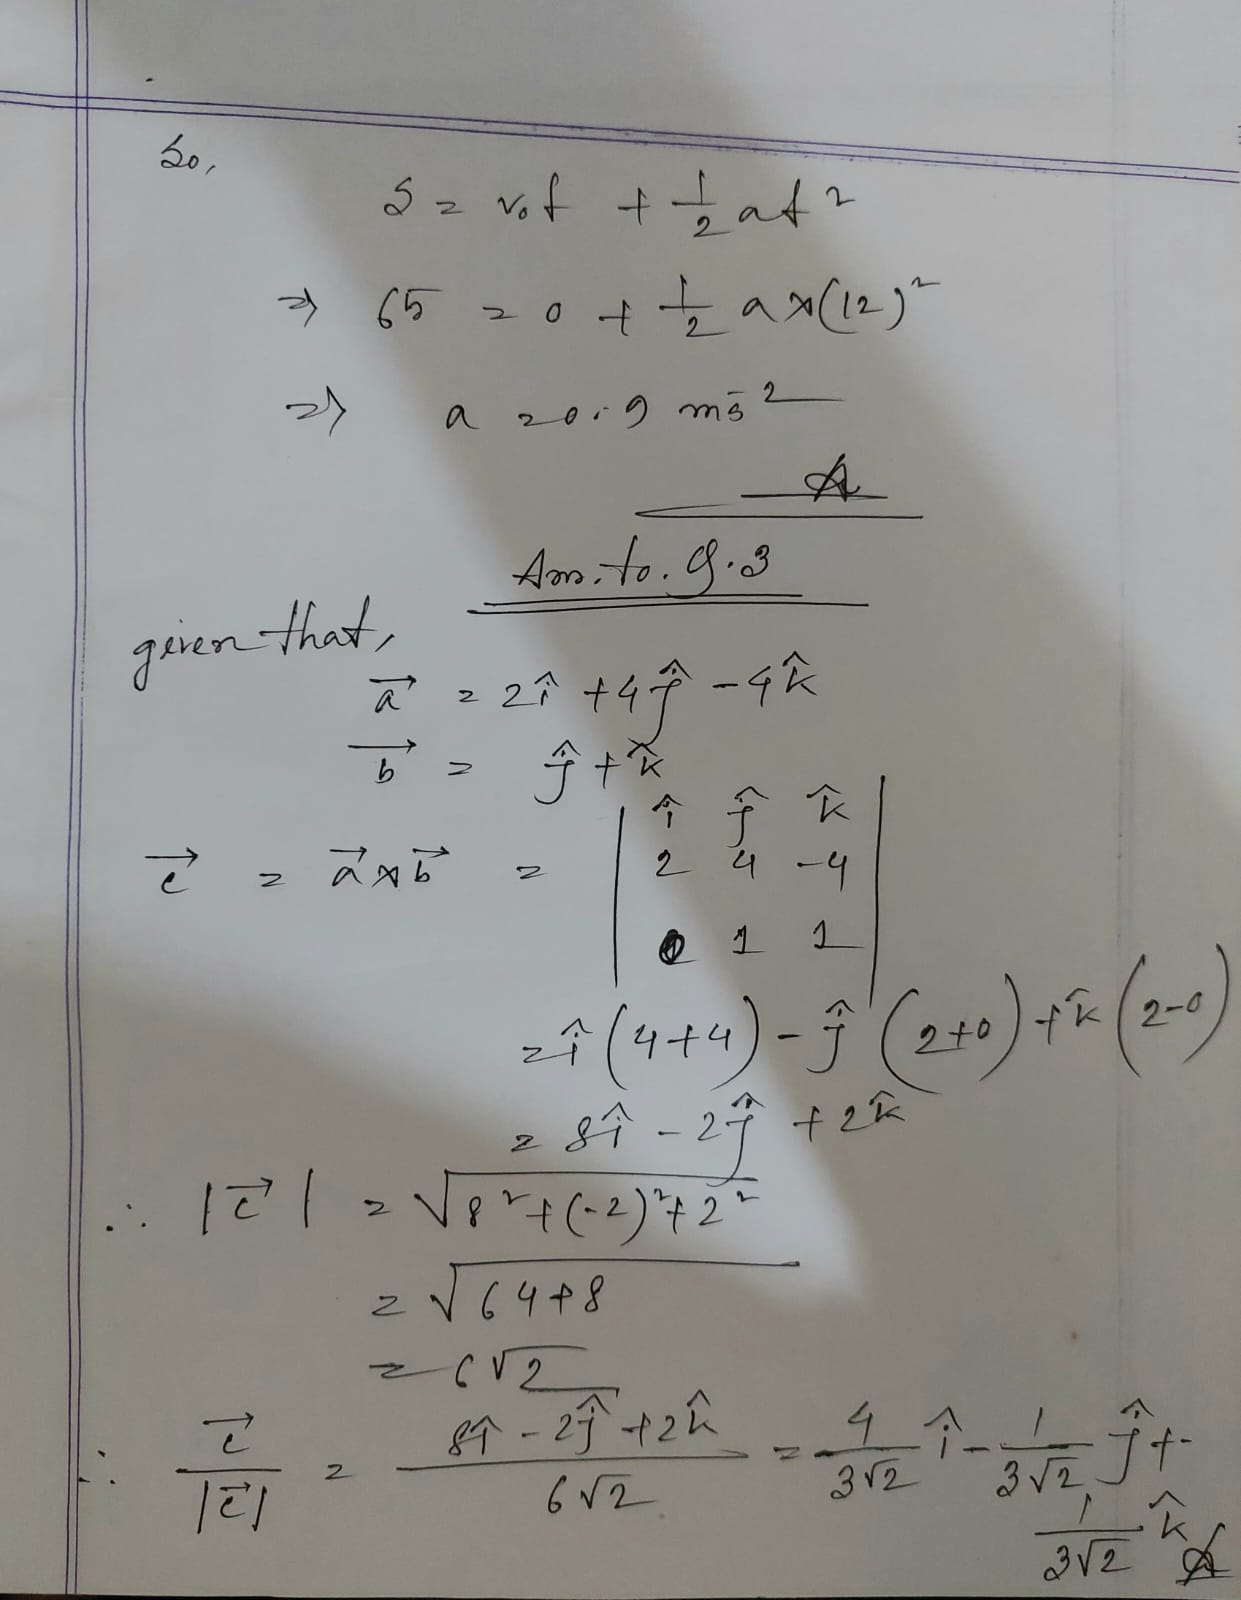 So,
S = v₀t + 1/2 at²
⇒ 65 = 0 + 1/2 a×(12)²
⇒ a = 0.9 ms⁻²
A
Ans. to. Q.3
given that,
a⃗ = 2î + 4ĵ - 4k̂
b⃗ = ĵ + k̂
c⃗ = a⃗ × b⃗ = | î ĵ k̂
2 4 -4
0 1 1 |
= î (4+4) - ĵ (2+0) + k̂ (2-0)
= 8î - 2ĵ + 2k̂
∴ |c⃗| = √(8² + (-2)² + 2²)
= √(64+8)
= 6√2
∴ c⃗/|c⃗| = (8î - 2ĵ + 2k̂)/(6√2) = 4/(3√2) î - 1/(3√2) ĵ +
1/(3√2) k̂ A